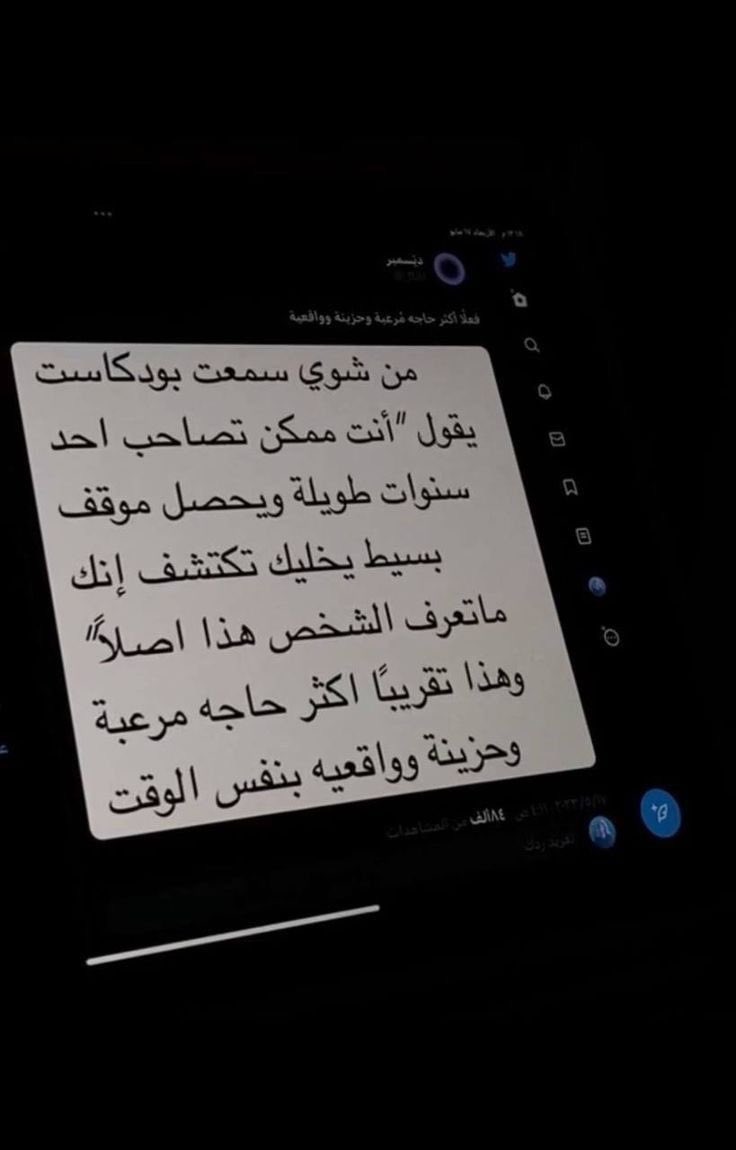 ديسمبر
فعلًا أكثر حاجه مُرعبة وحزينة وواقعية
من شوي سمعت بودكاست
يقول "أنت ممكن تصاحب احد
سنوات طويلة ويحصل موقف
بسيط يخليك تكتشف إنك
ماتعرف الشخص هذا اصلاً"
وهذا تقريبًا اكثر حاجه مرعبة
وحزينة وواقعيه بنفس الوقت
٨٤ألف من المشاهدات
تغريد ردك